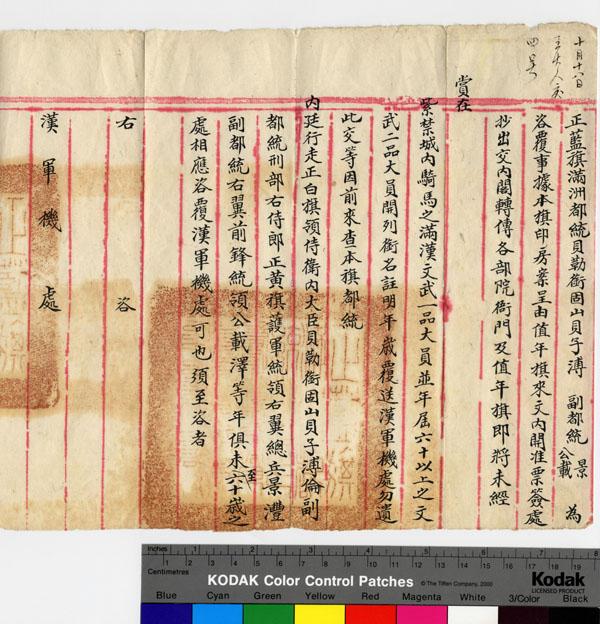 十月十八日
正藍旗滿洲都統貝勒銜固山貝子溥 副都統 景 公載 為
咨覆事據本旗印房案呈由值年旗來文內開准票簽處
抄出交內閣轉傳各部院衙門及值年旗即將未經
賞在
紫禁城內騎馬之滿漢文武一品大員並年屆六十以上之文
武二品大員開列銜名註明年歲覆送漢軍機處勿遺
此交等因前來查本旗都統
內廷行走正白旗領侍衛內大臣貝勒銜固山貝子溥倫副
都統刑部右侍郎正黃旗護軍統領右翼總兵景灃
副都統右翼前鋒統領公載澤等年俱未至六十歲之
處相應咨覆漢軍機處可也須至咨者
右 咨
漢軍機處
Inches 1 2 3 4 5 6 7 8
Centimetres 1 2 3 4 5 6 7 8 9 10 11 12 13 14 15 16 17 18 19
KODAK Color Control Patches © The Tiffen Company, 2000
Kodak
LICENSED PRODUCT
Blue Cyan Green Yellow Red Magenta White 3/Color Black